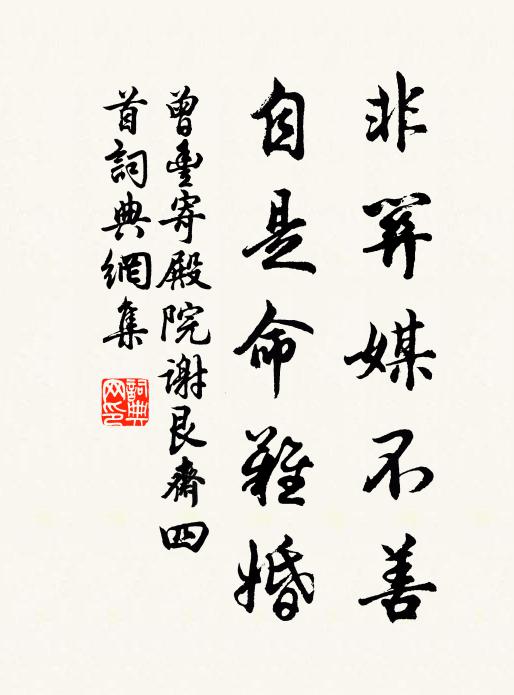 非筭媒不善
自是命難婚
曾豐寄殿院謝艮齋四
首詞典網集
詞典网印